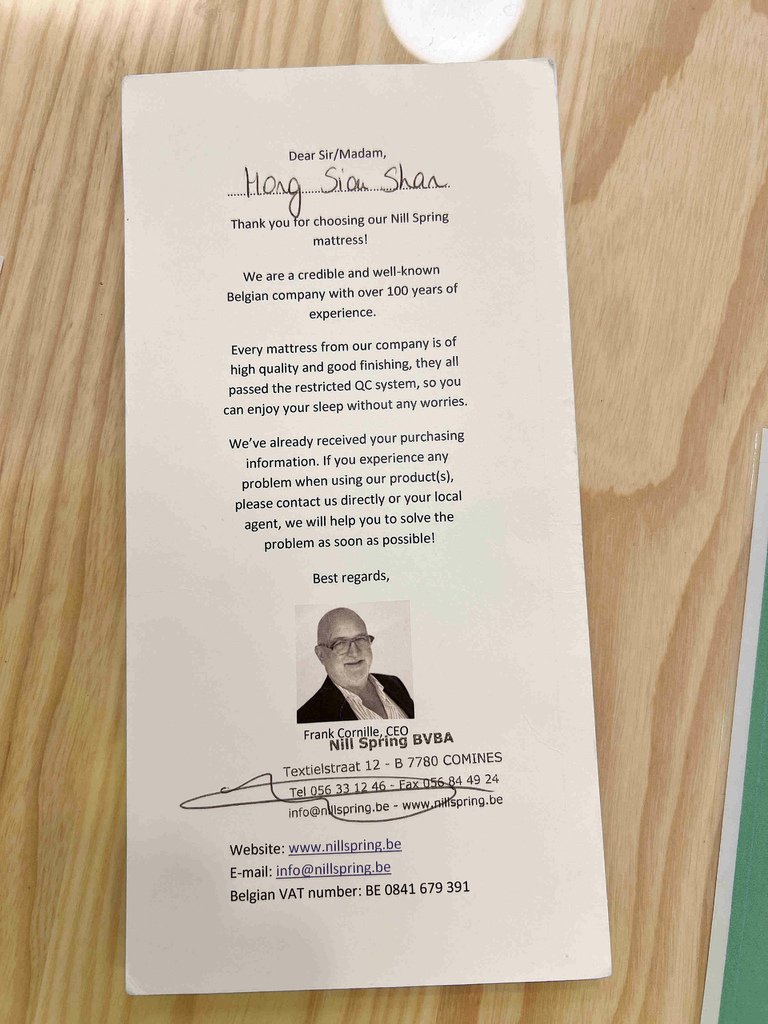 Dear Sir/Madam,
Hong Siou Shan
Thank you for choosing our Nill Spring
mattress!
We are a credible and well-known
Belgian company with over 100 years of
experience.
Every mattress from our company is of
high quality and good finishing, they all
passed the restricted QC system, so you
can enjoy your sleep without any worries.
We've already received your purchasing
information. If you experience any
problem when using our product(s),
please contact us directly or your local
agent, we will help you to solve the
problem as soon as possible!
Best regards,
Frank Cornille, CEO
Nill Spring BVBA
Textielstraat 12 - B 7780 COMINES
Tel 056 33 12 46 - Fax 056 84 49 24
info@nillspring.be - www.nillspring.be
Website: www.nillspring.be
E-mail: info@nillspring.be
Belgian VAT number: BE 0841 679 391